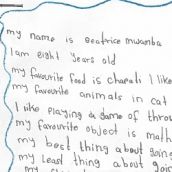 my name is Beatrice mwamba
I am eight years old
my favourite food is chapati I like
my favourite animals in cat
I like playing a game of throw
my favourite object is math
my best thing about going
my least thing about going